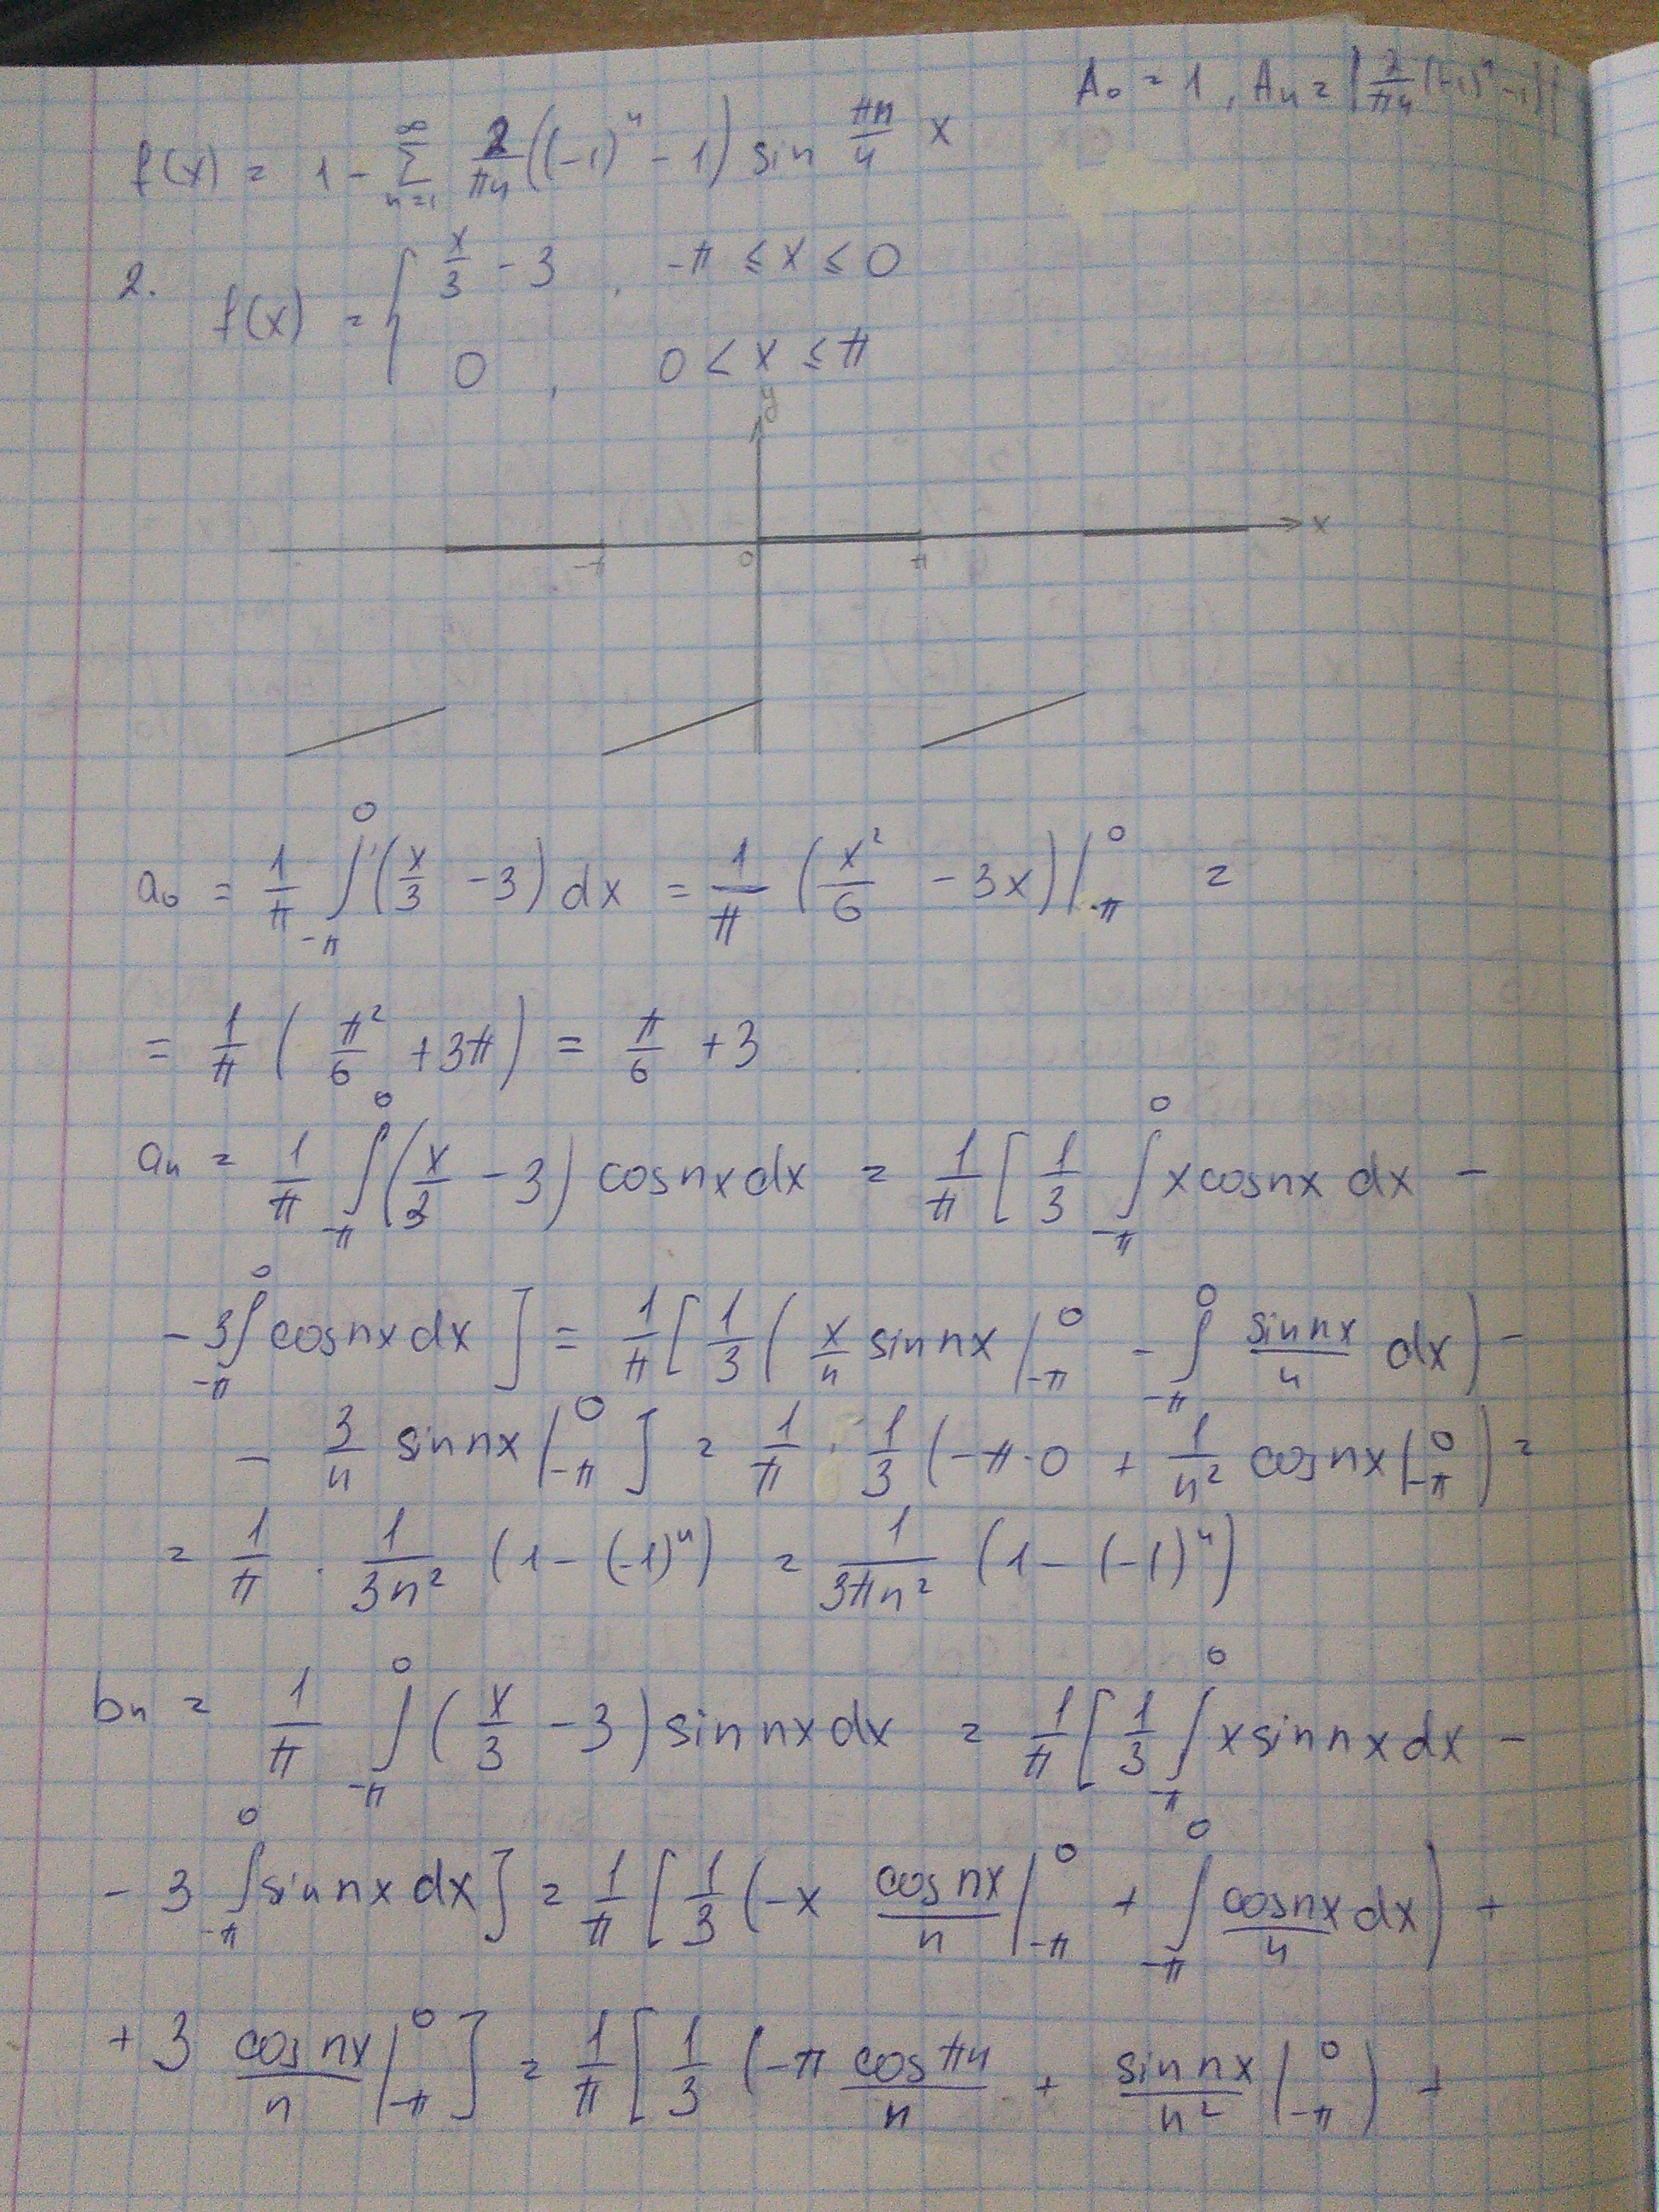 A₀ = 1, Aₙ = |2/(πn) ((-1)ⁿ - 1)|
f(x) = 1 - ∑_{n=1}^{∞} 2/(πn) ((-1)ⁿ - 1) sin πn/4 x
2. f(x) = { x/3 - 3, -π ≤ x ≤ 0
0, 0 < x ≤ π
y
-π 0 π x
a₀ = 1/π ∫_{-π}^{0} (x/3 - 3) dx = 1/π (x²/6 - 3x) |_{-π}^{0} =
= 1/π (π²/6 + 3π) = π/6 + 3
aₙ = 1/π ∫_{-π}^{0} (x/3 - 3) cos nx dx = 1/π [1/3 ∫_{-π}^{0} x cos nx dx -
- 3 ∫_{-π}^{0} cos nx dx] = 1/π [1/3 (x/n sin nx |_{-π}^{0} - ∫_{-π}^{0} sin nx/n dx) -
- 3/n sin nx |_{-π}^{0}] = 1/π · 1/3 (-π·0 + 1/n² cos nx |_{-π}^{0}) =
= 1/π · 1/(3n²) (1 - (-1)ⁿ) = 1/(3πn²) (1 - (-1)ⁿ)
bₙ = 1/π ∫_{-π}^{0} (x/3 - 3) sin nx dx = 1/π [1/3 ∫_{-π}^{0} x sin nx dx -
- 3 ∫_{-π}^{0} sin nx dx] = 1/π [1/3 (-x cos nx/n |_{-π}^{0} + ∫_{-π}^{0} cos nx/n dx) +
+ 3 cos nx/n |_{-π}^{0}] = 1/π [1/3 (-π cos πn/n + sin nx/n² |_{-π}^{0}) +